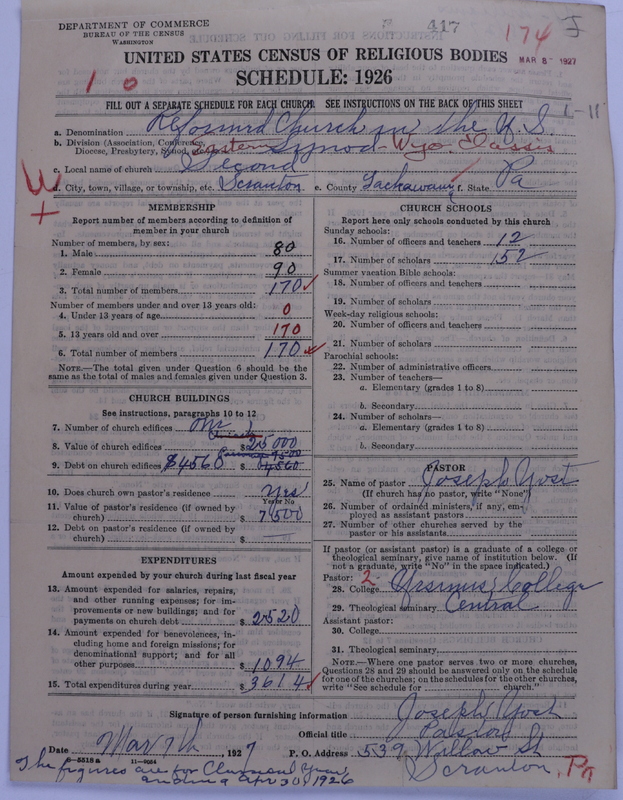 DEPARTMENT OF COMMERCE
BUREAU OF THE CENSUS
WASHINGTON
417
174
J
UNITED STATES CENSUS OF RELIGIOUS BODIES
MAR 8 1927
SCHEDULE: 1926
1 0
FILL OUT A SEPARATE SCHEDULE FOR EACH CHURCH. SEE INSTRUCTIONS ON THE BACK OF THIS SHEET
L-11
a. Denomination Reformed Church in the U.S.
b. Division (Association, Conference, Diocese, Presbytery, Synod, Eastern Synod - Wyo. Classis
c. Local name of church Second
d. City, town, village, or township, etc. Scranton e. County Lackawanna f. State Pa
W
+
MEMBERSHIP
Report number of members according to definition of
member in your church
Number of members, by sex:
1. Male 80
2. Female 90
3. Total number of members 170
Number of members under and over 13 years old:
4. Under 13 years of age 0
5. 13 years old and over 170
6. Total number of members 170
NOTE.—The total given under Question 6 should be
same as the total of males and females given under Question 3.
CHURCH BUILDINGS
See instructions, paragraphs 10 to 12
7. Number of church edifices One
8. Value of church edifices $ 25000
9. Debt on church edifices $4560 $ 4560
10. Does church own pastor's residence? Yes
Yes or No
11. Value of pastor's residence (if owned by
church) $ 7500
12. Debt on pastor's residence (if owned by
church) $ —
EXPENDITURES
Amount expended by your church during last fiscal year
13. Amount expended for salaries, repairs,
and other running expenses; for im-
provements or new buildings; and for
payments on church debt $ 2520
14. Amount expended for benevolences, in-
cluding home and foreign missions; for
denominational support; and for all
other purposes $ 1094
15. Total expenditures during year $ 3614
CHURCH SCHOOLS
Report here only schools conducted by this church
Sunday schools:
16. Number of officers and teachers 12
17. Number of scholars 152
Summer vacation Bible schools:
18. Number of officers and teachers
19. Number of scholars
Week-day religious schools:
20. Number of officers and teachers
21. Number of scholars
Parochial schools:
22. Number of administrative officers
23. Number of teachers—
a. Elementary (grades 1 to 8)
b. Secondary
24. Number of scholars—
a. Elementary (grades 1 to 8)
b. Secondary
PASTOR
25. Name of pastor Joseph Yost
(If church has no pastor, write "None")
26. Number of ordained ministers, if any, em-
ployed as assistant pastors
27. Number of other churches served by the
pastor or his assistants
If pastor (or assistant pastor) is a graduate of a college or
theological seminary, give name of institution below. (If
not a graduate, write "No" in the space indicated.)
Pastor: 2
28. College Ursinus College
29. Theological seminary Central
Assistant pastor:
30. College
31. Theological seminary
NOTE.—Where one pastor serves two or more churches,
Questions 28 and 29 should be answered only on the schedule
for one of the churches; on the schedules for the other churches,
write "See schedule for church."
Signature of person furnishing information Joseph Yost
Official title Pastor
Date Mar 7th, 1927 P. O. Address 539 Willow St
Scranton, Pa
8—5518 a 11—9054
The figures are for Classical Year
ending Apr 30, 1926